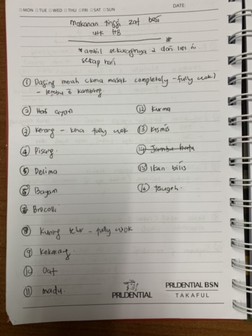 MON TUE WED THU FRI SAT SUN DATE
makanan tinggi zat besi
utk
* ambil sekurangnya 2 dari list ni
setiap hari
① Daging merah (kena masak completely - fully cook)
- lembu & kambing
② Hati ayam
③ Kerang - kena fully cook
④ Pisang
⑤ Delima
⑥ Bayam
⑦ Brokoli
⑧ Kuning telur - fully cook
⑨ Kekacang
⑩ Oat
⑪ madu
⑫ Kurma
⑬ Kismis
⑮ Ikan bilis
⑯ Taugeh
PRUDENTIAL
PRUDENTIAL BSN
TAKAFUL